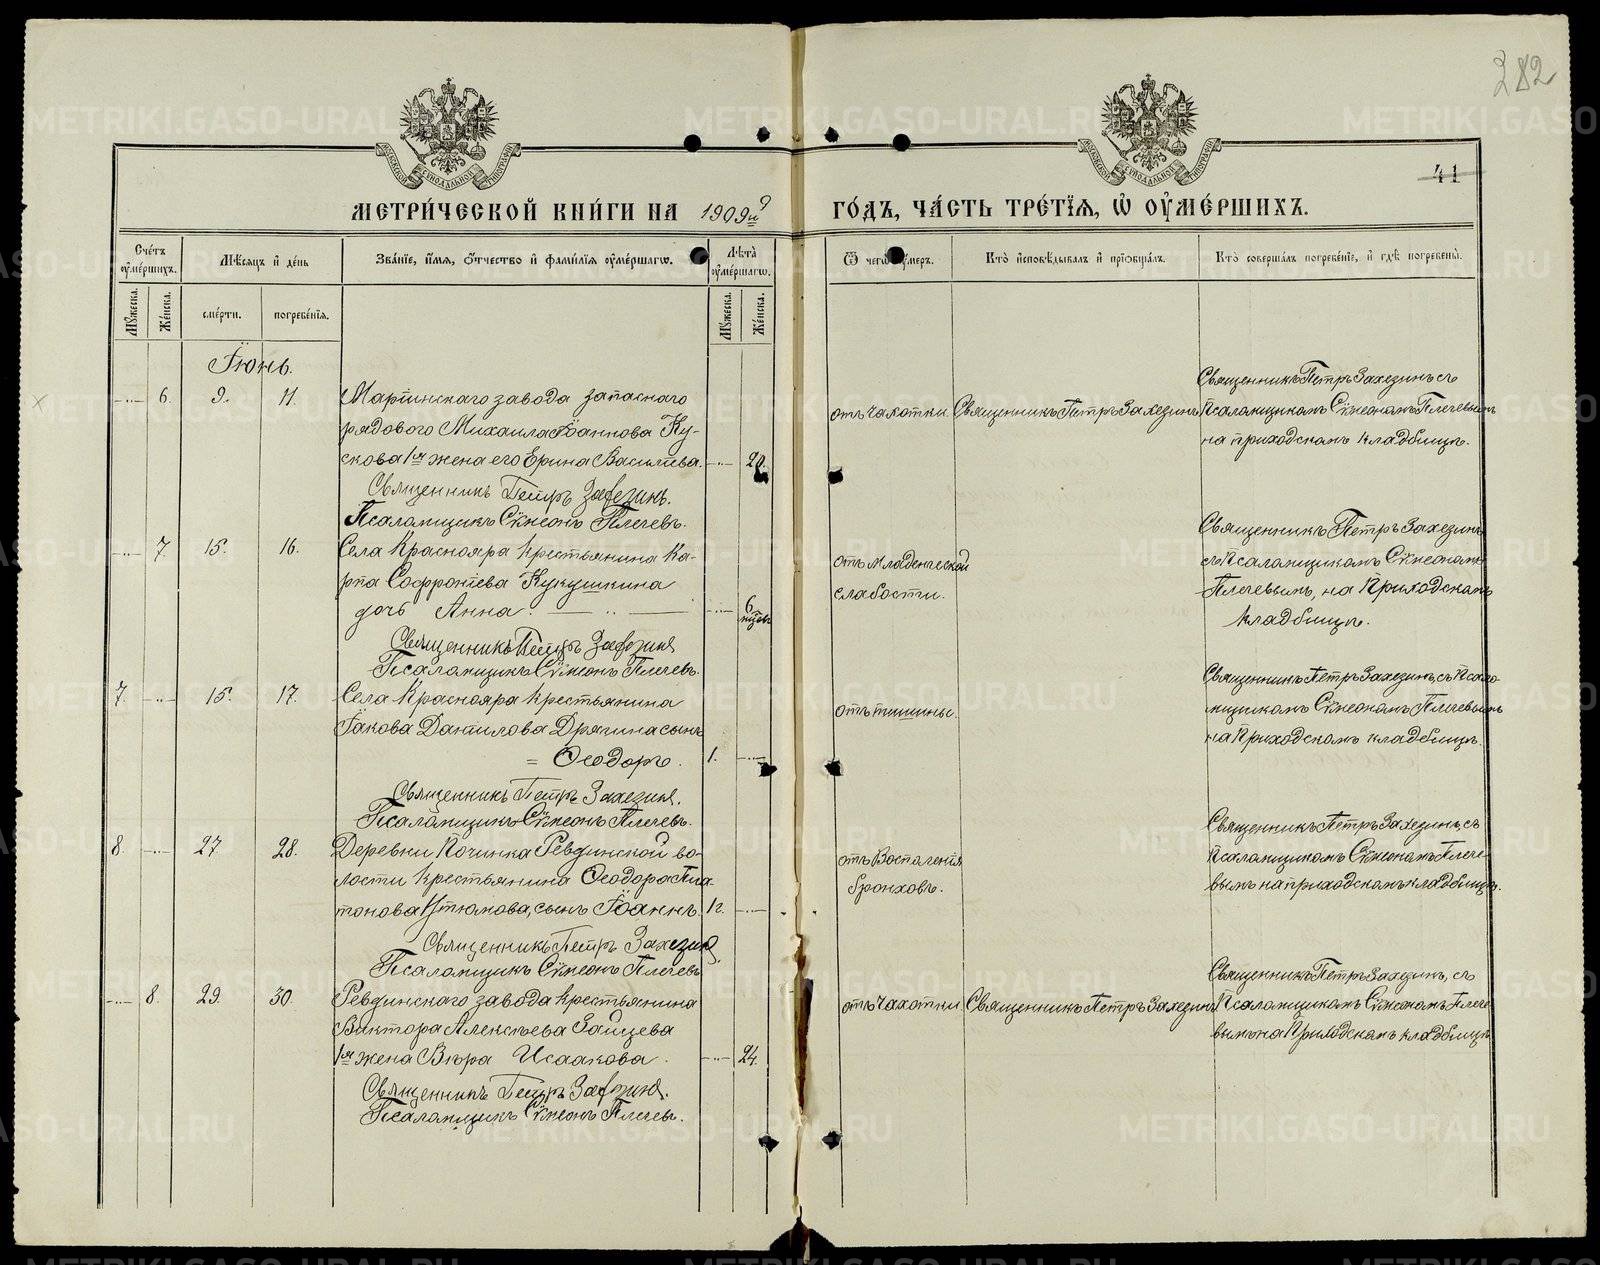 282
41
МЕТРИ́ЧЕСКОЙ КНИ́ГИ НА 1909й ГО́ДЪ, ЧА́СТЬ ТРЕ́ТЇѦ, Ѡ҆ ОУ҆МЕ́РШИХЪ.
Сче́тъ оу҆ме́ршихъ.
Мѣ́сѧцъ и҆ де́нь
Зва́нїе, и҆́мѧ, ѻ҆́тчество и҆ фами́лїѧ оу҆ме́ршагѡ.
Лѣ́та оу҆ме́ршагѡ.
Ѿ чегѡ̀ оу҆́меръ.
Кто̀ и҆сповѣ́дывалъ и҆ прїѡбща́лъ.
Кто̀ соверша́лъ погребе́нїе, и҆ гдѣ̀ погребены̀.
Мꙋ́жеска.
Же́нска.
сме́рти.
погребе́нїѧ.
Мꙋ́жеска.
Же́нска.
Іюнь.
6. 9. 11.
Маріинскаго завода запаснаго
рядового Михаила Іоаннова Ку-
скова 1ая жена его Ерина Васильева.
Священникъ Петръ Захезинъ.
Псаломщикъ Сѵмеонъ Плечевъ.
отъ чахотки.
Священникъ Петръ Захезинъ
Священникъ Петръ Захезинъ съ
Псаломщикомъ Сѵмеономъ Плечевымъ
на приходскомъ кладбищѣ.
7. 15. 16.
Села Краснояра крестьянина Ка-
рпа Софроніева Кукушкина
дочь Анна.
6 мцевъ
Священникъ Петръ Захезинъ
Псаломщикъ Сѵмеонъ Плечевъ.
отъ младенческой
слабости.
Священникъ Петръ Захезинъ
съ Псаломщикомъ Сѵмеономъ
Плечевымъ, на Приходскомъ
кладбищѣ.
7. 15. 17.
Села Краснояра крестьянина
Іакова Данилова Дрягина сынъ
= Ѳеодоръ. 1.
Священникъ Петръ Захезинъ.
Псаломщикъ Сѵмеонъ Плечевъ.
отъ тишины.
Священникъ Петръ Захезинъ, съ Псало
мщикомъ Сѵмеономъ Плечевымъ
на Приходскомъ кладбищѣ.
8. 27 28.
Деревни Починка Ревдинской во-
лости крестьянина Ѳеодора Пла-
тонова Утюмова, сынъ Іоаннъ. 1г.
Священникъ Петръ Захезинъ
Псаломщикъ Сѵмеонъ Плечевъ
отъ Воспаленія
бронховъ.
Священникъ Петръ Захезинъ, съ
Псаломщикомъ Сѵмеономъ Плече-
вымъ на приходскомъ кладбищѣ.
8. 29. 30.
Ревдинскаго завода крестьянина
Виктора Алексѣева Зайцева
1ая жена Вѣра Исаакова. 24.
Священникъ Петръ Захезинъ.
Псаломщикъ Сѵмеонъ Плечевъ.
отъ чахотки.
Священникъ Петръ Захезинъ
Священникъ Петръ Захезинъ, съ
Псаломщикомъ Сѵмеономъ Плече
вымъ на Приходскомъ кладбищѣ
METRIKI.GASO-URAL.RU